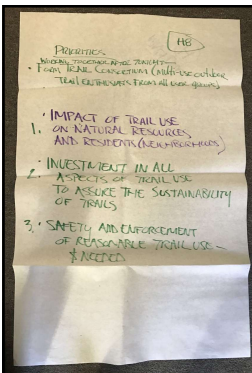 H8
PRIORITIES
WORKING TOGETHER AFTER TONIGHT
• FORM TRAIL CONSORTIUM (MULTI-USE OUTDOOR
TRAIL ENTHUSIASTS FROM ALL USER GROUPS)
1. • IMPACT OF TRAIL USE
ON NATURAL RESOURCES
AND RESIDENTS (NEIGHBORHOODS)
2. • INVESTMENT IN ALL
ASPECTS OF TRAIL USE
TO ASSURE THE SUSTAINABILITY
OF TRAILS
3. • SAFETY AND ENFORCEMENT
OF REASONABLE TRAIL USE –
NEEDED